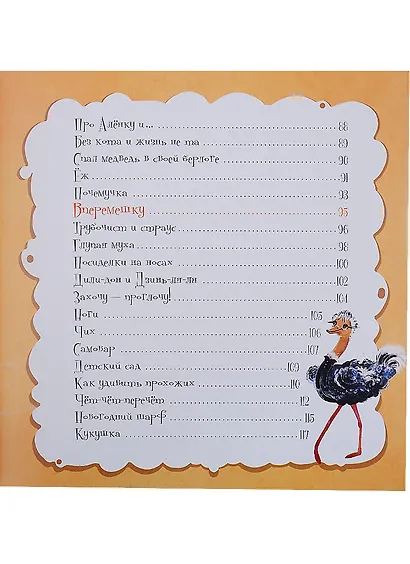 Про Алёнку и... 88
Без кота и жизнь не та 89
Спал медведь в своей берлоге 90
Ёж 91
Почемучка 93
Вперемешку 95
Трубочист и страус 96
Глупая муха 98
Посиделки на носах 100
Дили-дон и Дзинь-ля-ля 102
Захочу — проглочу! 104
Ноги 105
Чих 106
Самовар 107
Детский сад 109
Как удивить прохожих 110
Чёт-чёт-перечёт 112
Новогодний шарф 115
Кукушка 117